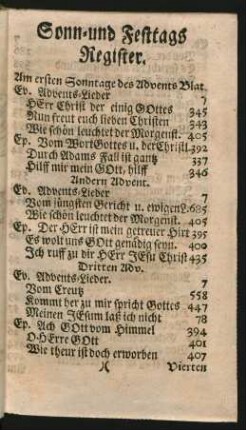 Sonn-und Festtags
Register.
Am ersten Sonntage des Advents Blat
Ev. Advents-Lieder 7
HErr Christ der einig GOttes 345
Nun freut euch lieben Christen 343
Wie schön leuchtet der Morgenst. 405
Ep. Vom Wort Gottes u. der Christl. 392
Durch Adams Fall ist gantz 337
Hilff mir mein GOtt, hilff 346
Andern Advent.
Ev. Advents-Lieder 7
Vom jüngsten Gericht u. ewigen L. 685
Wie schön leuchtet der Morgenst. 405
Ep. Der HErr ist mein getreuer Hirt 395
Es woll uns GOtt genädig seyn. 400
Ich ruff zu dir HErr JEsu Christ 435
Dritten Adv.
Ev. Advents-Lieder. 7
Vom Creutz 558
Kommt her zu mir spricht Gottes 447
Meinen JEsum laß ich nicht 78
Ep. Ach GOtt vom Himmel 394
O HErre GOtt 401
Wie theur ist doch erworben 407
)( Vierten